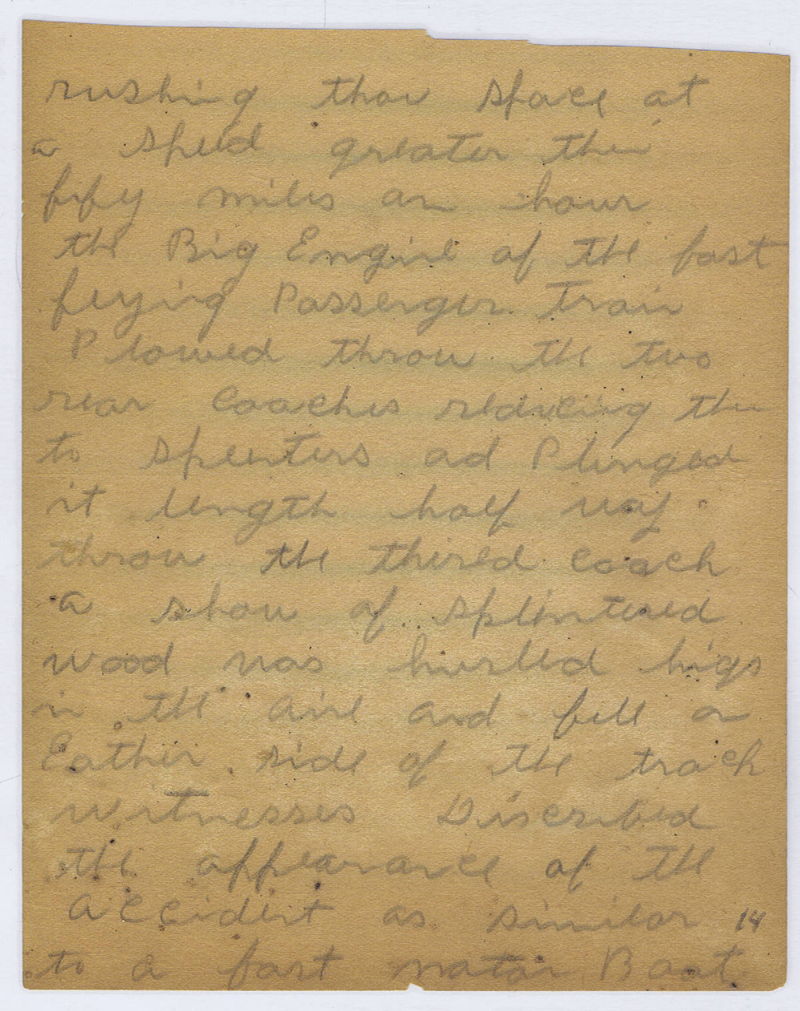 rushing thow space at
a speed greater then
fifty miles an hour
the Big Engine of the fast
flying Passenger Train
Plowed throw the two
rear coaches reducing the
to splenters ad Plunged
it length half way
throw the thired coach
a show of splintered
wood was hurlled high
in the aire and fell on
Eather side of the track
witnesses Discribed
the appearance of the
accident as similar 14
to a fast motor Boat